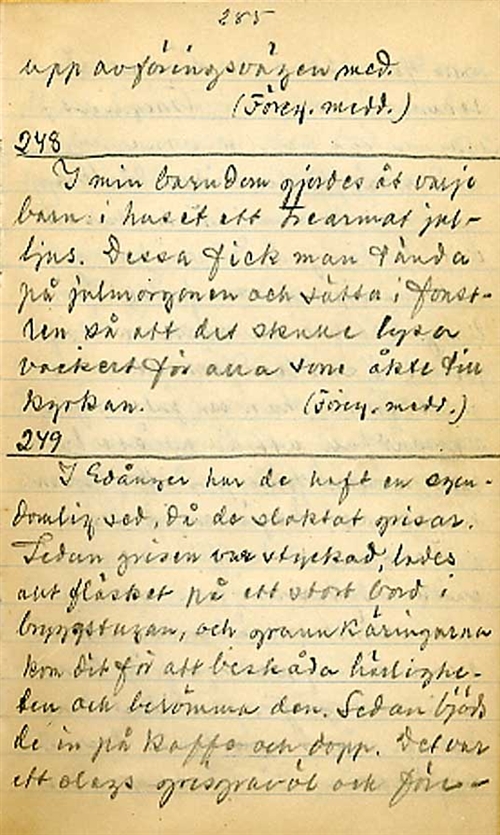 285
upp avföringsvägen med.
(Föreg. medd.)
248
I min barndom gjordes åt varje
barn i huset ett trearmat jul-
ljus. Dessa fick man tända
på julmorgonen och sätta i fönst-
ren så att det skulle lysa
vackert för alla som åkte till
kyrkan. (Föreg. medd.)
249
I Edånger har de haft en egen-
domlig sed, då de slaktat grisar.
Sedan grisen var styckad, lades
allt fläsket på ett stort bord i
bryggstugan, och grannkäringarna
kom dit för att beskåda härlighe-
ten och berömma den. Sedan bjöds
de in på kaffe och dopp. Det var
ett slags grisgravöl och före-